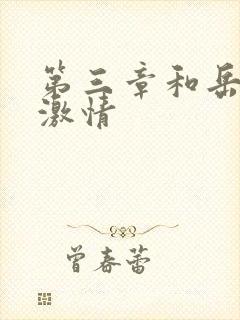 第三章和岳
激情
曾春蕾